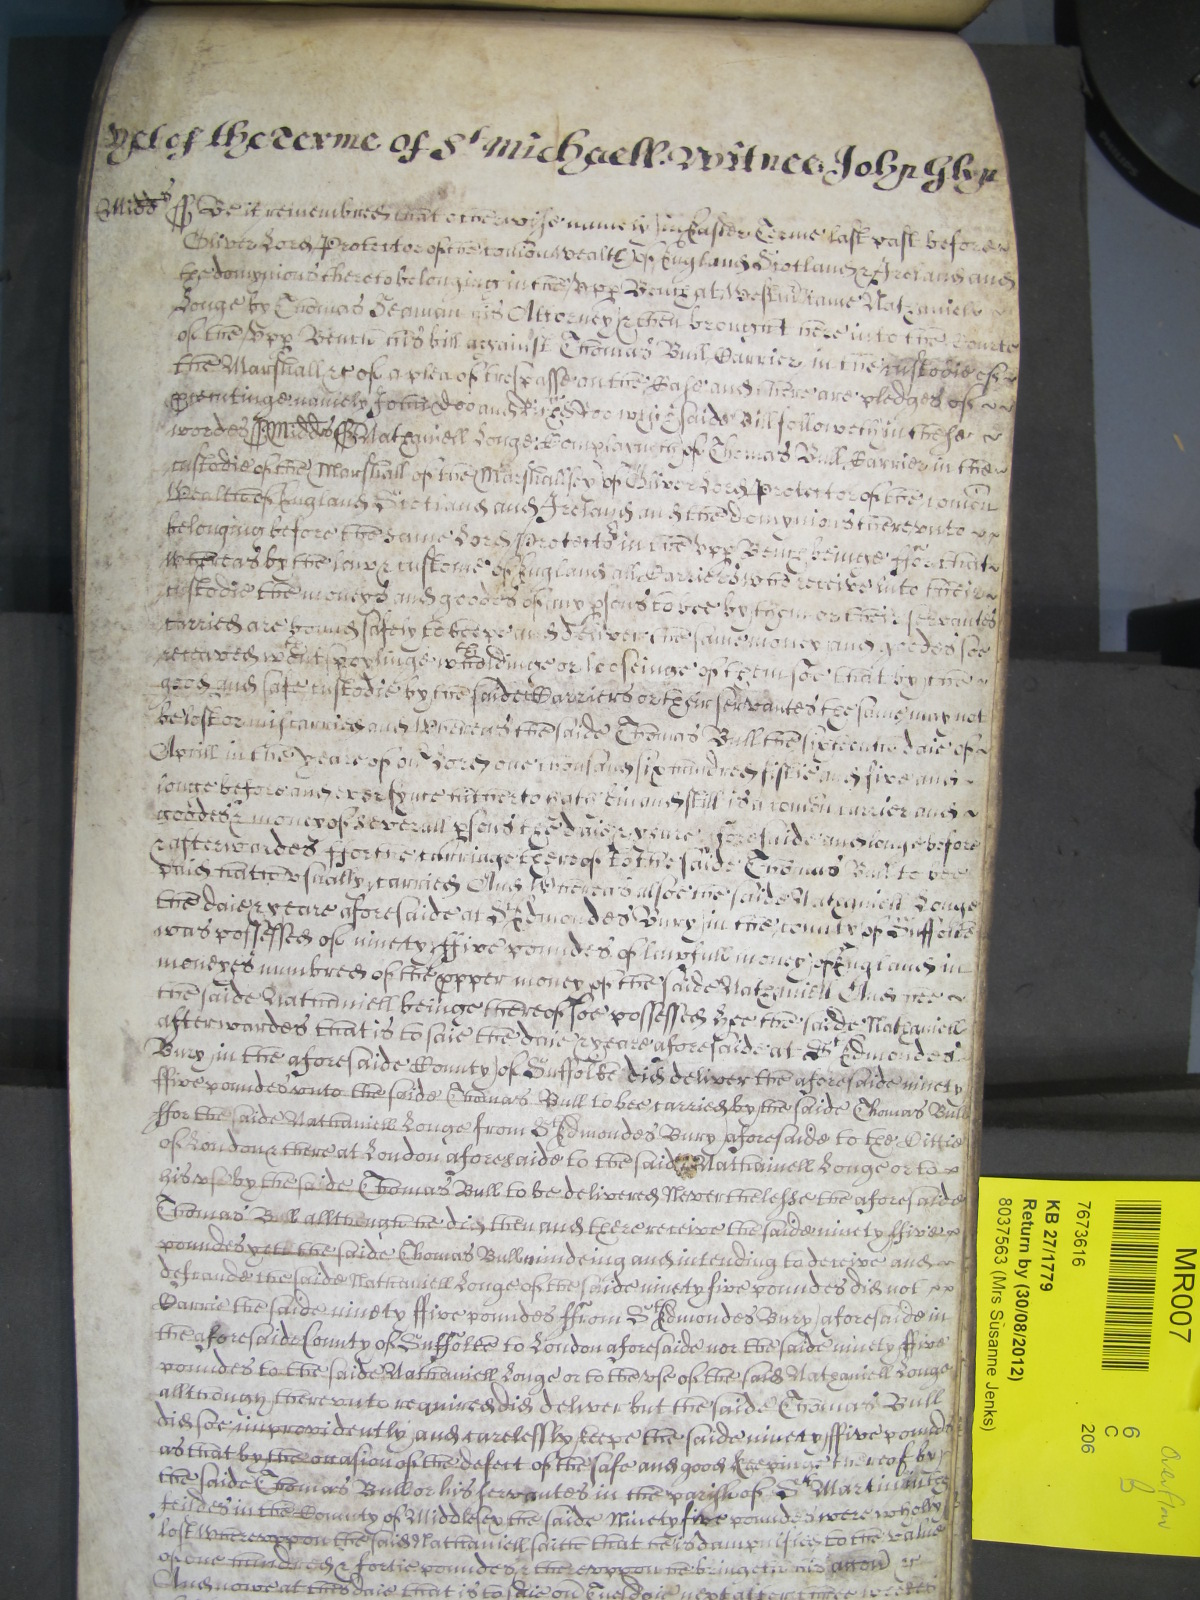 yet of the Terme of St Michaell. Witnes John Glyn
Midds ss Be it remembred that otherwise namely in Easter Terme last past before
Oliver Lord Protector of the comonwealth of England Scotland & Ireland and
the dominions thereto belonging in the Upp Bench at Westm came Nathaniell
Longe by Thomas Seaman his Attorney & then brought here into the Courte
of the Upp Bench his bill against Thomas Bull Carrier in the custodie of
the Marshall &c of a plea of trespasse on the Case and there are pledges of
prosecutinge namely John Doo and Rich Roo wch saide Bill followeth in these
wordes ss Midds ss Nathaniell Longe Complayneth of Thomas Bull Carrier in the
custodie of the Marshall of the Marshallsey of Oliver Lord Protector of the comon
Wealth of England Scotland and Ireland and the dominions thereunto
belonging before the same Lord Protector in the Upp Bench beinge For that
Whereas by the lawe & custome of England all Carriers who receive into their
custodie the moneys and goodes of any psons to bee by them or their servantes
carried are bound safely to keepe and deliver the same money and goodes soe
receaved wthout spoylinge wthholdinge or looseinge of them soe that by the
good and safe custodie by the saide Carriers or their servantes the same may not
be lost or miscarried and Whereas the saide Thomas Bull the sixteenth daie of
Aprill in the yeare of our Lord one thousand six hundred fiftie and five and
longe before and ever synce hitherto hath bin and still is a comon carrier and
goodes & money of severall psons the daie & yeare aforesaide and longe before
& afterwardes for the carriage thereof to the saide Thomas Bull to bee
paid hath usually carried And Whereas alsoe the saide Nathaniell Longe
the daie & yeare aforesaide at St Edmondes Bury in the county of Suffolke
was possessed of ninety & ffive poundes of lawfull money of England in
moneyes numbred of the pper money of the saide Nathaniell And hee
the saide Nathaniell beinge thereof soe possessed hee the saide Nathaniell
afterwardes that is to saie the daie & yeare aforesaide at St Edmondes
Bury in the aforesaide County of Suffolke did deliver the aforesaide ninety
ffive poundes unto the saide Thomas Bull to bee carried by the saide Thomas Bull
ffor the saide Nathaniell Longe from St Edmondes Bury aforesaide to the Cittie
of London & there at London aforesaide to the said Nathaniell Longe or to
his use by the saide Thomas Bull to be delivered Neverthelesse the aforesaide
Thomas Bull allthough he did then and there receive the saide ninety ffive
poundes yett the saide Thomas Bull mindeing and intending to deceive and
defraude the saide Nathaniell Longe of the saide ninety five poundes did not
Carrie the saide ninety ffive poundes ffrom St Edmondes Bury aforesaide in
the aforesaide County of Suffolke to London aforesaide nor the saide ninety ffive
poundes to the saide Nathaniell Longe or to the use of the said Nathaniell Longe
allthough thereunto required did deliver but the saide Thomas Bull
did soe improvidently and carelessly keepe the saide ninety ffive poundes
as that by the occasion of the defect of the safe and good keepinge thereof by
the saide Thomas Bull or his servantes in the parish of St Martin in the
feildes in the County of Middlesex the saide Ninety five poundes were wholly
lost Whereuppon the said Nathaniell saith that he is dampnified to the value
of one hundred & fortie poundes & thereuppon he bringeth his accon &c
And nowe at this daie that is to saie on Tuesdaie next after three weekes
MR007
6
C
206
7673616
KB 27/1779
Return by (30/08/2012)
8037563 (Mrs Susanne Jenks)
PHILIPS